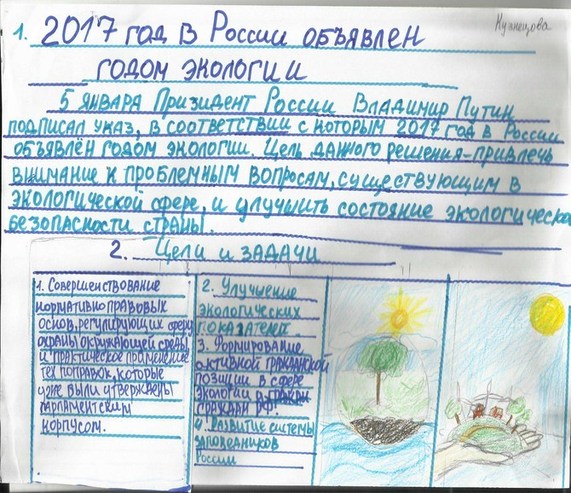 Кузнецова
1. 2017 год в России объявлен
годом экологии
5 января Призидент России Владимир Путин
подписал указ, в соответствии с которым 2017 год в России
объявлён годом экологии. Цель данного решения-привлечь
внимание к проблемным вопросам, существующим в
экологической сфере, и улучшить состояние экологическо
безопасности страны.
2. Цели и задачи
1. Совершенствование
нормативно правовых
основ, регулирующих сферу
охраны окружающей среды
и практическое применение
тех поправок, которые
уже были утверждены
парламентским
корпусом.
2. Улучшение
экологических
показателей
3. Формирование
активной гражданской
позиции в сфере
экологии
граждан РФ.
4. Развитие системы
заповедников
России